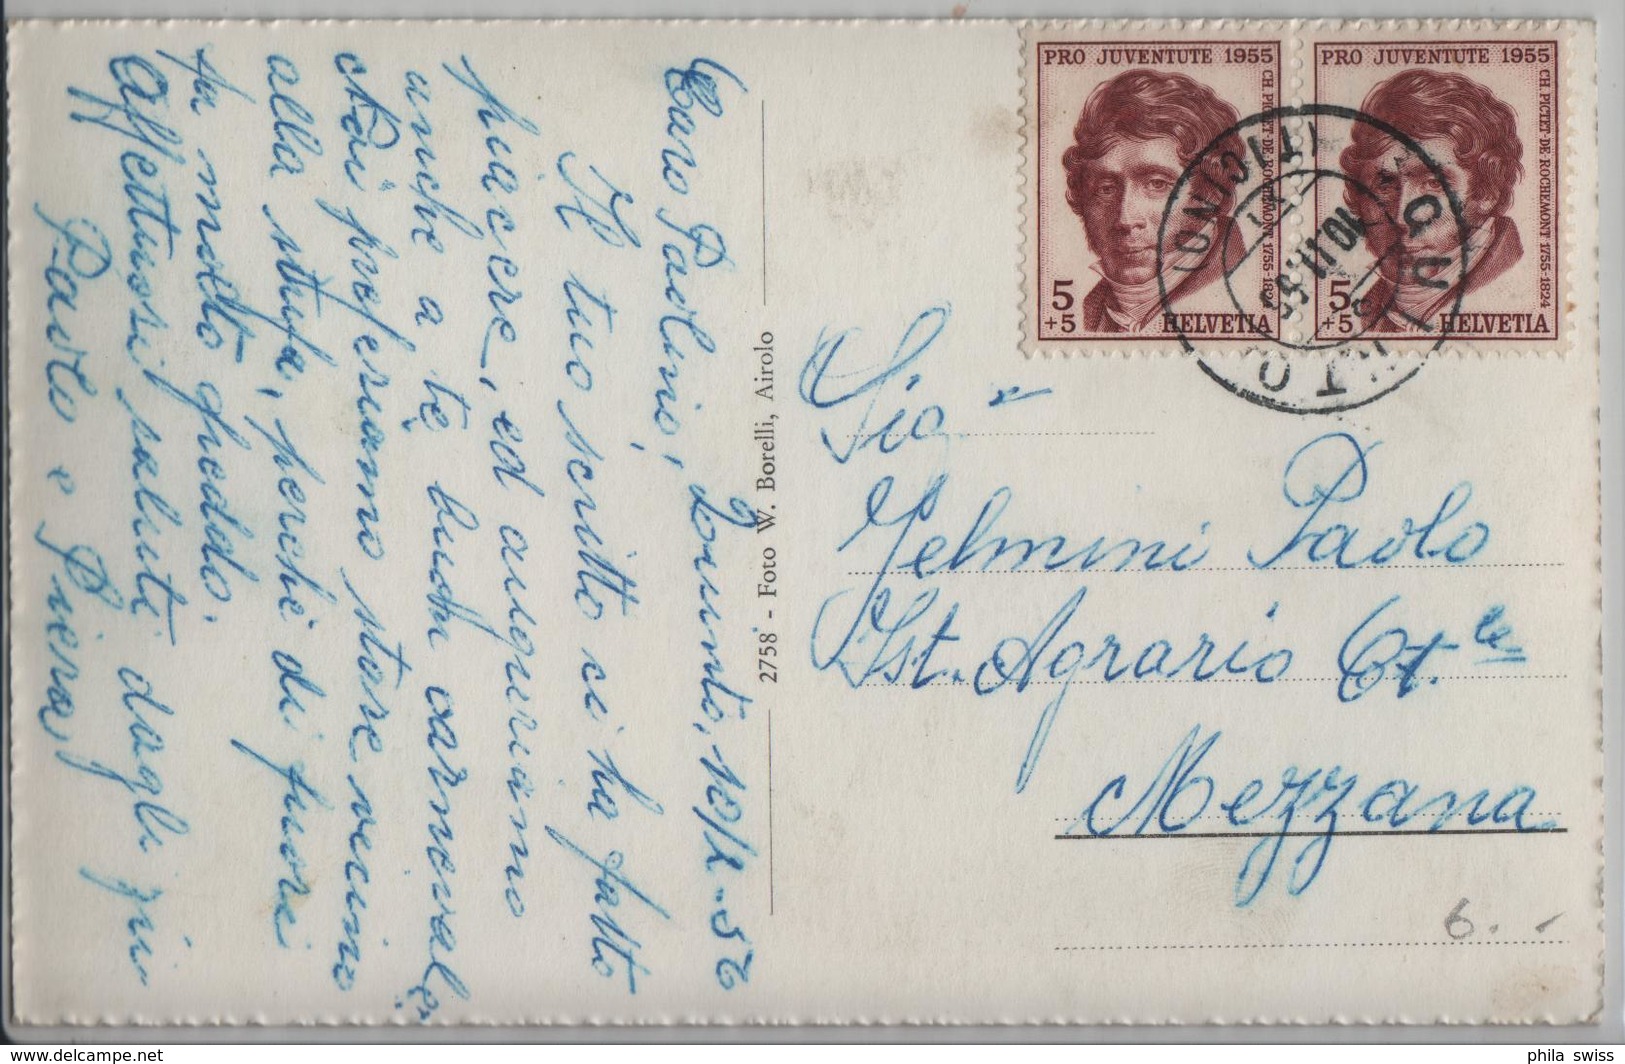 Caro Paolino,
Quinto, 10/2-56
Il tuo scritto ci ha fatto
piacere, ed auguriamo
anche a te buon carnevale
ctoi preferiamo stare vicino
alla stufa, perchè di fuori
fa molto freddo.
Affettuosi saluti dagli zii
Paolo e Piera
2758 - Foto W. Borelli, Airolo
PRO JUVENTUTE 1955
CH. PICTET-DE-ROCHEMONT 1755-1824
5
+5
HELVETIA
PRO JUVENTUTE 1955
CH. PICTET-DE-ROCHEMONT 1755-1824
5
+5
HELVETIA
QUINTO
(TICINO)
Sig.r
Jelmini Paolo
Ist. Agrario Ct.le
Mezzana
6.-
phila swiss
www.delcampe.net